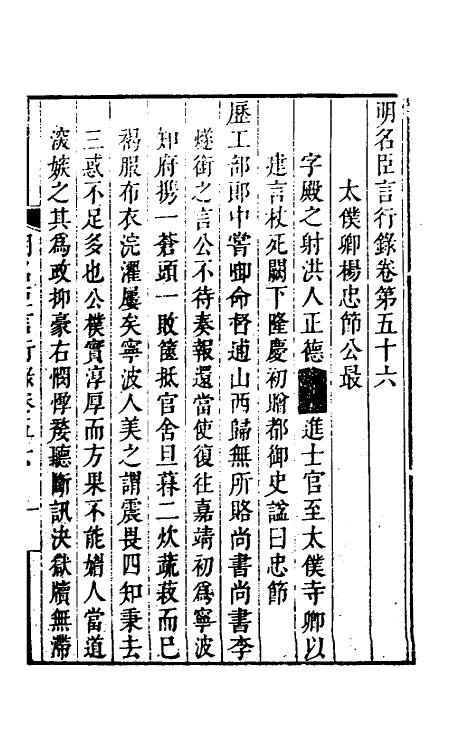 明名臣言行錄卷第五十六
太僕卿楊忠節公最
字殿之射洪人正德進士官至太僕寺卿以
建言杖死闕下隆慶初贈都御史諡曰忠節
歷工部郎中嘗卹命督逋山西歸無所賂尚書尚書李
鐩銜之言公不待奏報還當使復往嘉靖初爲寧波
知府携一蒼頭一敗篋抵官舍旦暮二炊蔬菽而已
褐服布衣浣濯屢矣寧波人美之謂震畏四知秉去
三惑不足多也公樸實淳厚而方果不能媚人當道
淡嫉之其爲政抑豪右憫惸嫠聽斷訊決獄牘無滯
明名臣言行錄卷五六 一